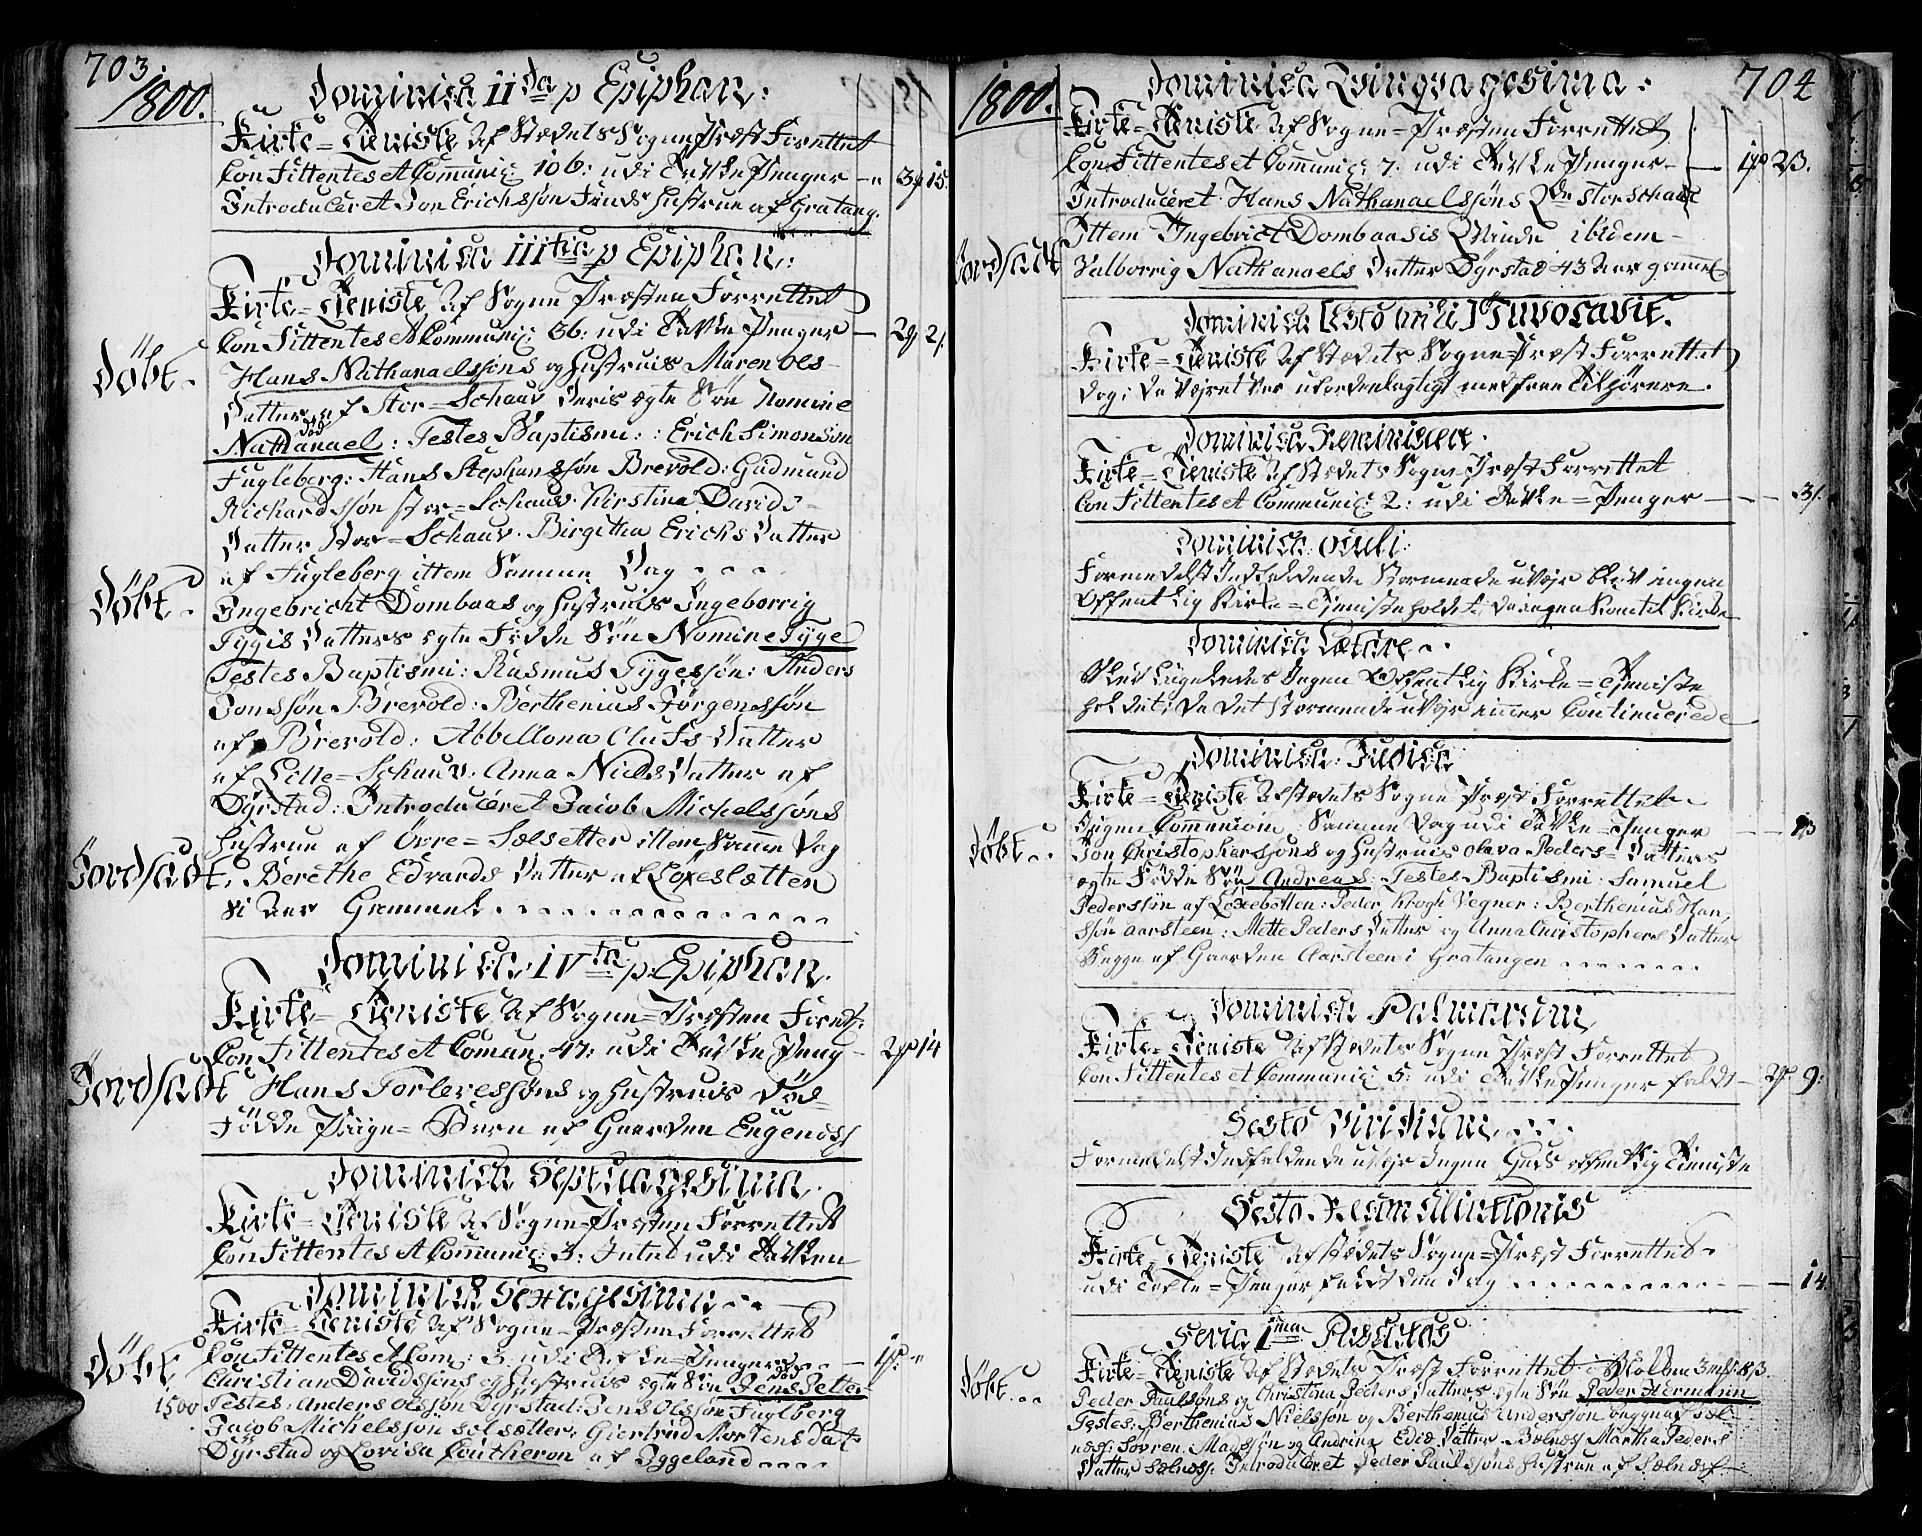 703.
1800.
Dominica II da p Epiphan:
Kirke=Tieniste Af Stædets Sogne Præst Forrettet
Confittentes et Comunic: 106: udi Tavle Penger — 3 15.
Introduceret Jon Erichssøn Finds Hustrue af Gratang.
Dominica III tia p Epiphan:
Kirke=Tieniste Af Sogne Præsten Forrettet
Confittentes et Communic: 36: udi Tavle Penger — 2 2.
Døbt.
Hans Nathanaelssøns og Hustruis Maren Ols-
Datter af Stor=Schauv Deris egte Søn Nomine
død
Nathanael: Testes Baptismi: Erich Simonsøn
Fugleberg: Hans Stephanssøn Brevold: Gudmund
Richardssøn Stor=Schauv. Kirstina Davids-
Datter Stor=Schauv. Birgitha Erichs Datter
af Fugleberg ittem Samme Dag
Døbt.
Ingebricht Dombaas og Hustruis Ingeborrig
Tygis Datters egte Fødde Søn Nomine Tyge
Testes Baptismi: Rasmus Tygessøn: Anders
Jonssøn Brevold: Berthenius Jørgenssøn
af Brevold: Abbellona Olufs Datter
af Lille=Schauv: Anna Niels Datter af
Dyrstad: Introduceret Jacob Michelssøns
Hustrue af Øvre=Sølsetter ittem Samme Dag
Jordfæst, Berethe Edvards Datter af Løxesletten
Aar Gammel
Dominica IV ta p: Epiphan.
Kirke=Tieniste Af Sogne=Præsten Forrett:
Confittentes et Comun: 47: udi Tavle Peng — 2 14
Jordfæst Hans Torleressøns og Hustruis Død-
Fødde Piige=Barn af Gaarden Engenæss
Dominica Septuagesima.
Kirke=Tieniste Af Sogne=Præsten Forrettet
Confittentes et Communic: 3: Intet udi Tavlen
Dominica Sexagesima
Kirke=Tieniste Af Sogne=Præsten Forrettet
Confittentes et Com: 3. udi Tavle=Penger — 1
Døbt
død
Christian Davidssøns og Hustruis egte Søn Jens Petter
1500
Testes: Anders Olssøn Dyrstad: Jens Olssøn Fuglberg
Jacob Michelssøn Sølsætter: Giertrud Mortens Dat
Dyrstad og Lovisa Coutheron af Yggeland
1800.
704
Dominica Qvinqvagesima:
Kirke=Tieniste Af Sogne=Præsten Forrettet
Confittentes et Comunic: 7: udi Tavle Penger — 1 23.
Introduceret Hans Nathanaelssøns Qde Stor Schauv
Ittem Ingebrict Dombaasis Qvinde ibidem
Jordfæst
Valborrig Nathanaels Datter Dyrstad 43 Aar gamel
Dominica [Esto mihi] Invocavit.
Kirke=Tieniste Af Stædets Sogne=Præst Forrettet
Dog, da Vejret var uordenlagtigt med faae Tilhørere.
Dominica Reminiscere.
Kirke=Tieniste Af Stædets Sogne Præst Forrettet
Confittentes et Communic: 2: udi Tavle=Penger — 3
Dominica: Oculi:
Formedelst Indfaldende Stormende uVejr blev ingen
Offentlig Kirke=Tjeniste holdet, da ingen kom til Kirke
Dominica Lætare
Blev Liigeledes Ingen Offentlig Kirke=Tjeniste
holdet, da det Stormende uVejr Continuerede
Dominica: Judica
Kirke=Tieniste Af Stædets Sogne Præst Forrettet
Ingen Communion Samme Dag udi Tavle=Penger
Døbt
Jon Christopherssøns og Hustruis Olava Peders=Datters
egte Fødde Søn Andreas. Testes Baptismi: Samuel
Pederssøn af Løxebotten: Peder Krogh Vegner: Berthenius Han,
ssøn Aarsteen: Mette Peders Datter og Anna Christophers Datter
Begge af Gaarden Aarsteen i Gratangen
Dominica Palmarum
Kirke=Tieniste Af Stædets Sogne Præst Forrettet
Confittentes et Communic: 5: udi Tavle Penger faldt — 2 9:
Festo Viridium
Formedelst Indfaldende uVejr Ingen Guds offentlig Tieniste
Festo Resurrectionis
Kirke=Tieniste Af Stædets Sogne=Præst Forrettet
udi Tavle=Penger faldt den Dag — 14.
Feria 1 ma Paschatos
Kirke=Tieniste Af Stædets Præst Forrettet
Døbt
Peder Paulsøns og Christina Peders Datters egte Søn Peder Hermann
Testes: Berthenius Nielssøn og Berthenius Anderssøn begge af Sæl-
næss: Søvren Madssøn og Andrina Datter Bolnæss Martha Peders
Datter Sælnæss: Introduceret Peder Paulssøns Hustrue af Sælnæss